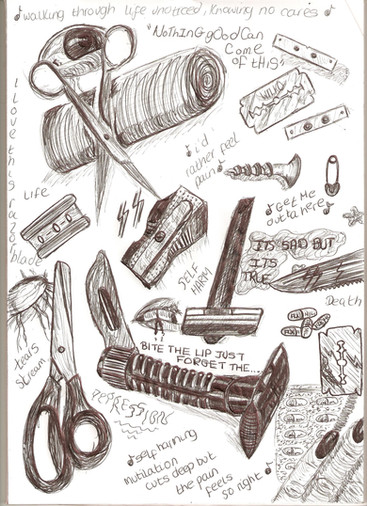 ♪ walking through life unoticed, Knowing no cares ♪
"NoThinG gOOd Can
Come
of THIS"
I Love this razor
blade
♪ i'd
rather feel
pain ♪
Life
♪ Get Me
outta here ♪
ITS SAD BUT
ITS
TRUE
SELF
HARM
Death
tears
stream
BITE THE LIP JUST
FORGET THE...
DEPRESSION
♪ self harming
mutilation
cuts deep but
the pain
feels
so right ♪